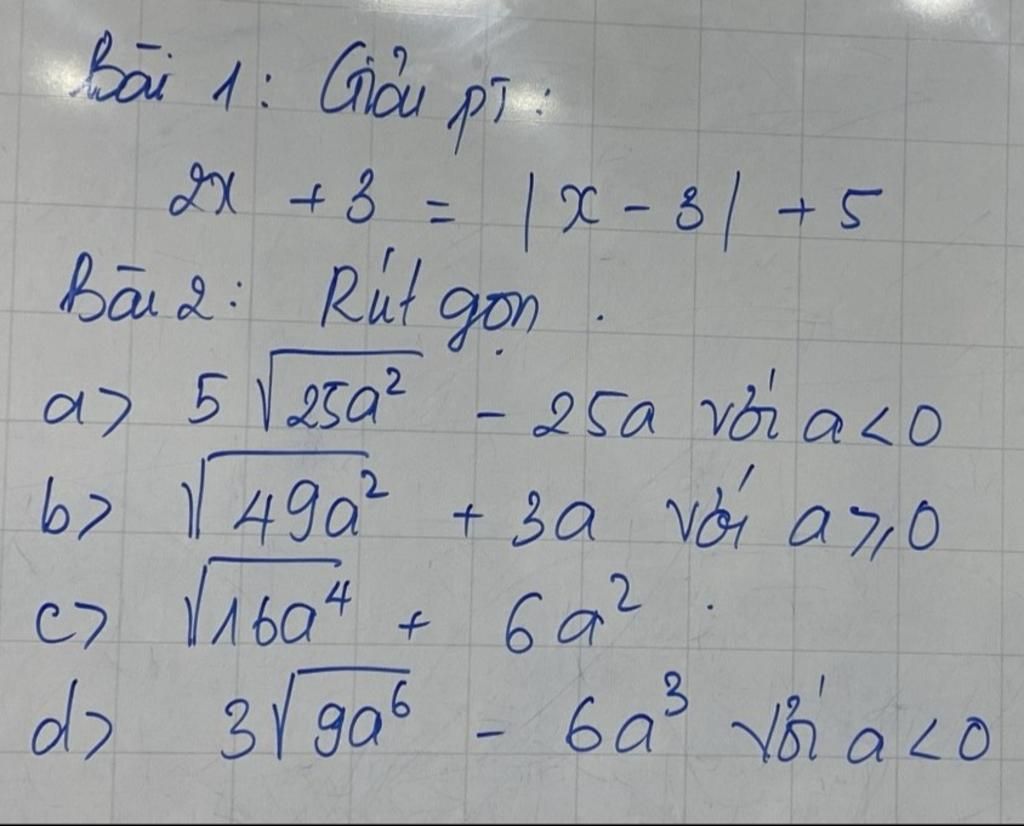 Bài 1: Giải pT:
2x + 3 = |x - 3| + 5
Bài 2: Rút gọn.
a> 5√25a² - 25a với a < 0
b> √49a² + 3a với a ≥ 0
c> √16a⁴ + 6a².
d> 3√9a⁶ - 6a³ với a < 0